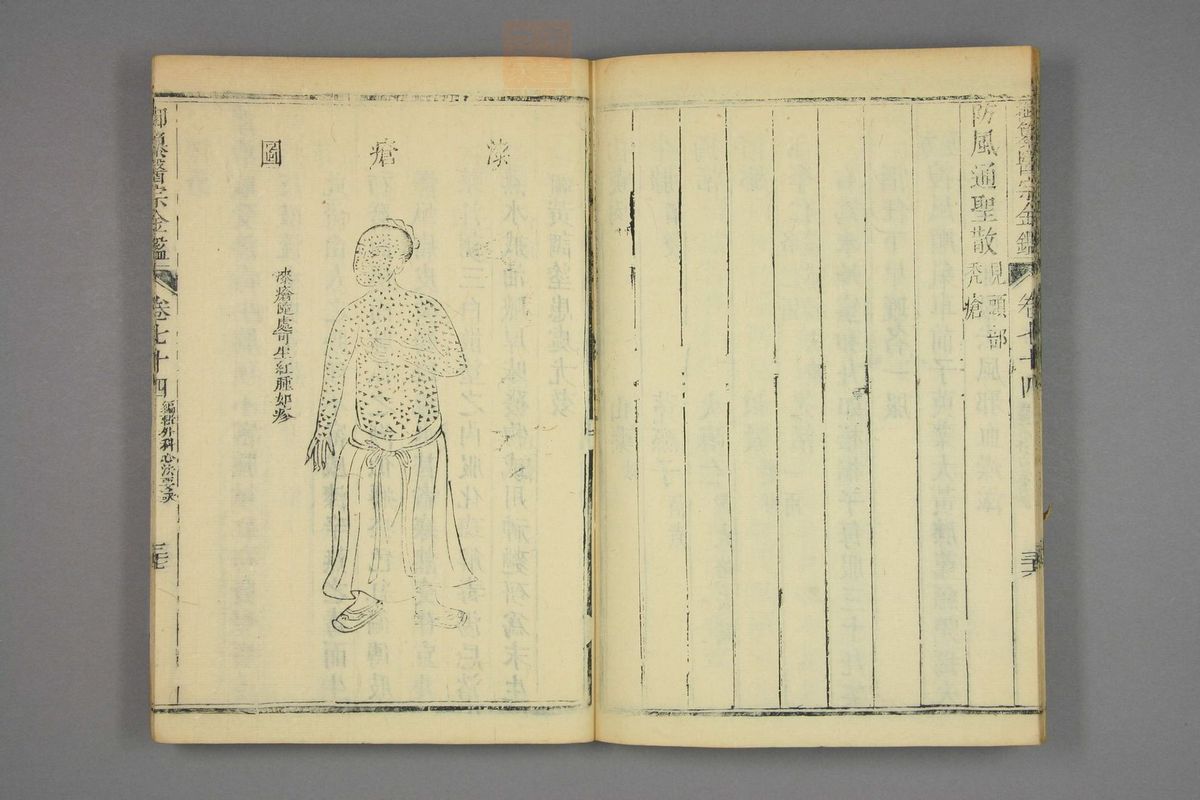 防風通聖散見頭部
禿瘡
御纂醫宗金鑑
卷七十四
三六
漆瘡圖
漆瘡隨處可生紅腫如疹
御纂醫宗金鑑
卷七十四
編輯外科心法要訣
三七